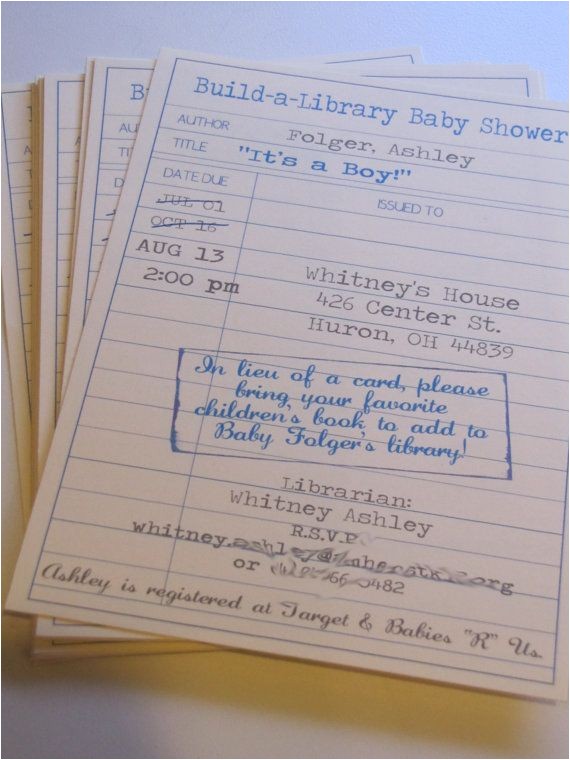 Build-a-Library Baby Shower
AUTHOR Folger, Ashley
TITLE "It's a Boy!"
DATE DUE ISSUED TO
JUL 01
OCT 16
AUG 13
2:00 pm
Whitney's House
426 Center St.
Huron, OH 44839
In lieu of a card, please
bring your favorite
children's book, to add to
Baby Folger's library!
Librarian:
Whitney Ashley
R.S.V.P
or
Ashley is registered at Target & Babies "R" Us.